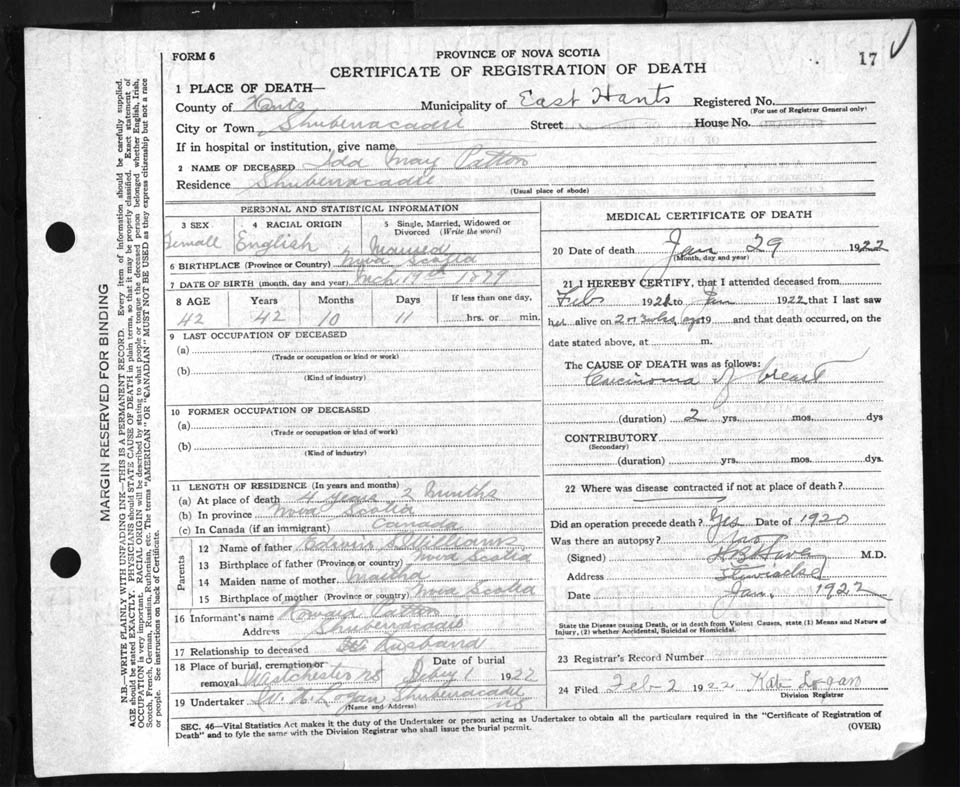 FORM 6
PROVINCE OF NOVA SCOTIA
17
CERTIFICATE OF REGISTRATION OF DEATH
1 PLACE OF DEATH—
County of Hants Municipality of East Hants Registered No.
(For use of Registrar General only)
City or Town Shubenacadie Street House No.
If in hospital or institution, give name
2 NAME OF DECEASED Ida May Patton
Residence Shubenacadie
(Usual place of abode)
PERSONAL AND STATISTICAL INFORMATION
3 SEX 4 RACIAL ORIGIN 5 Single, Married, Widowed or Divorced (Write the word)
Female English Married
6 BIRTHPLACE (Province or Country) Nova Scotia
7 DATE OF BIRTH (month, day and year) Mch 19th 1879
8 AGE Years Months Days If less than one day,
42 42 10 11 hrs. or min.
9 LAST OCCUPATION OF DECEASED
(a)
(Trade or occupation or kind or work)
(b)
(Kind of industry)
10 FORMER OCCUPATION OF DECEASED
(a)
(Trade or occupation or kind of work)
(b)
(Kind of industry)
11 LENGTH OF RESIDENCE (In years and months)
(a) At place of death 4 years 2 Months
(b) In province Nova Scotia
(c) In Canada (if an immigrant) Canada
Parents
12 Name of father Edwin Williams
13 Birthplace of father (Province or country) Nova Scotia
14 Maiden name of mother Martha
15 Birthplace of mother (Province or country) Nova Scotia
16 Informant's name Howard Patton
Address Shubenacadie
17 Relationship to deceased Husband
18 Place of burial, cremation or removal Westchester NS Date of burial 1 1922
19 Undertaker W. H. Logan Shubenacadie NS
(Name and Address)
MEDICAL CERTIFICATE OF DEATH
20 Date of death Jan 29 1922
(Month, day and year)
21 I HEREBY CERTIFY, that I attended deceased from
1922, that I last saw
her alive on 2 or 3 wks ago 19 and that death occurred, on the
date stated above, at m.
The CAUSE OF DEATH was as follows:
Carcinoma of breast
(duration) 2 yrs. mos. dys
CONTRIBUTORY
(Secondary)
(duration) yrs. mos. dys.
22 Where was disease contracted if not at place of death?
Did an operation precede death? Yes Date of 1920
Was there an autopsy? no
(Signed) M.D.
Address Stewiacke
Date Jan. 1922
State the Disease causing Death, or in death from Violent Causes, state (1) Means and Nature of
Injury, (2) whether Accidental, Suicidal or Homicidal.
23 Registrar's Record Number
24 Filed Feb 2 1922 Kate Logan
Division Registrar
SEC. 46—Vital Statistics Act makes it the duty of the Undertaker or person acting as Undertaker to obtain all the particulars required in the "Certificate of Registration of
Death" and to fyle the same with the Division Registrar who shall issue the burial permit.
(OVER)
MARGIN RESERVED FOR BINDING
N.B.—WRITE PLAINLY WITH UNFADING INK—THIS IS A PERMANENT RECORD. Every item of information should be carefully supplied.
AGE should be stated EXACTLY. PHYSICIANS should STATE CAUSE OF DEATH in plain terms, so that it may be properly classified. Exact statement of
OCCUPATION is very important. RACIAL ORIGIN will be described by stating to what people or tongue the deceased person belonged whether English, Irish,
Scotch, French, German, Russian, Ruthenian, etc. The terms "AMERICAN" OR "CANADIAN" MUST NOT BE USED as they express citizenship but not a race
or people. See instructions on back of Certificate.